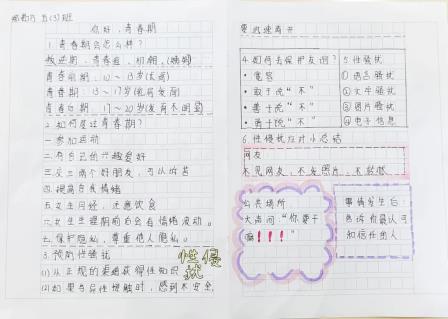 五(3)班
你好,青春期
1.青春期会怎么样?
叛逆期、青春痘、初潮、
青春前期:10~13岁
青春期:13~17岁
青春后期:17~20岁(发育不明显)
2.如何度过青春期?
一.参加运动
二.有自己的兴趣爱好
三.交三两个好朋友,可以倾苦
四.提高自我情绪
五.女生月经,注意饮食
六.女生生理期前后会有情绪波动。
七.保护隐私,尊重他人隐私。
3.预防性骚扰
性侵扰
(1)从正规的渠道获得性知识
(2)如果与异性接触时,感到不安全,
要迅速离开
4.如何去保护友谊?
·宽容
·敢于说“不”
·善于说“不”
·勇于说“不”
5.性骚扰
①语言骚扰
②文字骚扰
③图片骚扰
④电子信息
6.性侵扰应对小总结
网友
不见网友、不发照片、不软弱
公共场所
大声问:“你要干
嘛!!!”
事情发生后:
告诉你最认可
和信任的人